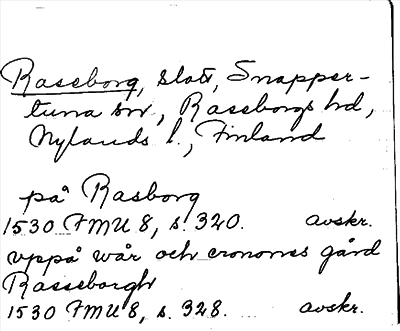 Raseborg, slott, Snapper-
tuna sn, Raseborgs hd,
Nylands l., Finland
på Rasborg
1530 FMU 8, s. 320. avskr.
vppå wår och cronones gård
Rasseborgh
1530 FMU 8, s. 328. avskr.